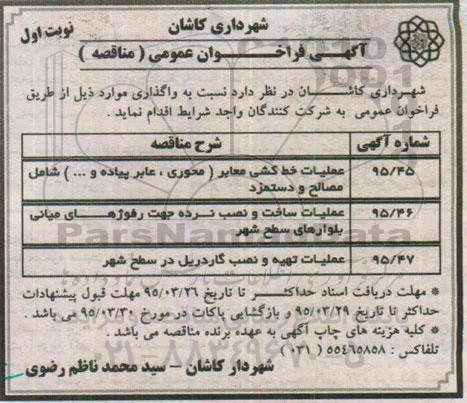 شهرداری کاشان
نوبت اول
آگهی فراخوان عمومی ( مناقصه )
شهرداری کاشان در نظر دارد نسبت به واگذاری موارد ذیل از طریق
فراخوان عمومی به شرکت کنندگان واجد شرایط اقدام نماید .
شماره آگهی شرح مناقصه
۹۵/۴۵ عملیات خط کشی معابر ( محوری ، عابر پیاده و ... ) شامل
مصالح و دستمزد
۹۵/۴۶ عملیات ساخت و نصب نرده جهت رفوژهای میانی
بلوارهای سطح شهر
۹۵/۴۷ عملیات تهیه و نصب گاردریل در سطح شهر
* مهلت دریافت اسناد حداکثر تا تاریخ ۹۵/۰۳/۲۶ مهلت قبول پیشنهادات
حداکثر تا تاریخ ۹۵/۰۳/۲۹ و بازگشایی پاکات در مورخ ۹۵/۰۳/۳۰ می باشد .
* کلیه هزینه های چاپ آگهی به عهده برنده مناقصه می باشد .
تلفاکس : ۵۵۴۶۵۸۵۸ ( ۰۳۱ )
شهردار کاشان – سید محمد ناظم رضوی
ParsNamadData
۰۲۱-۸۸۳۴۹۶۷۰-۵